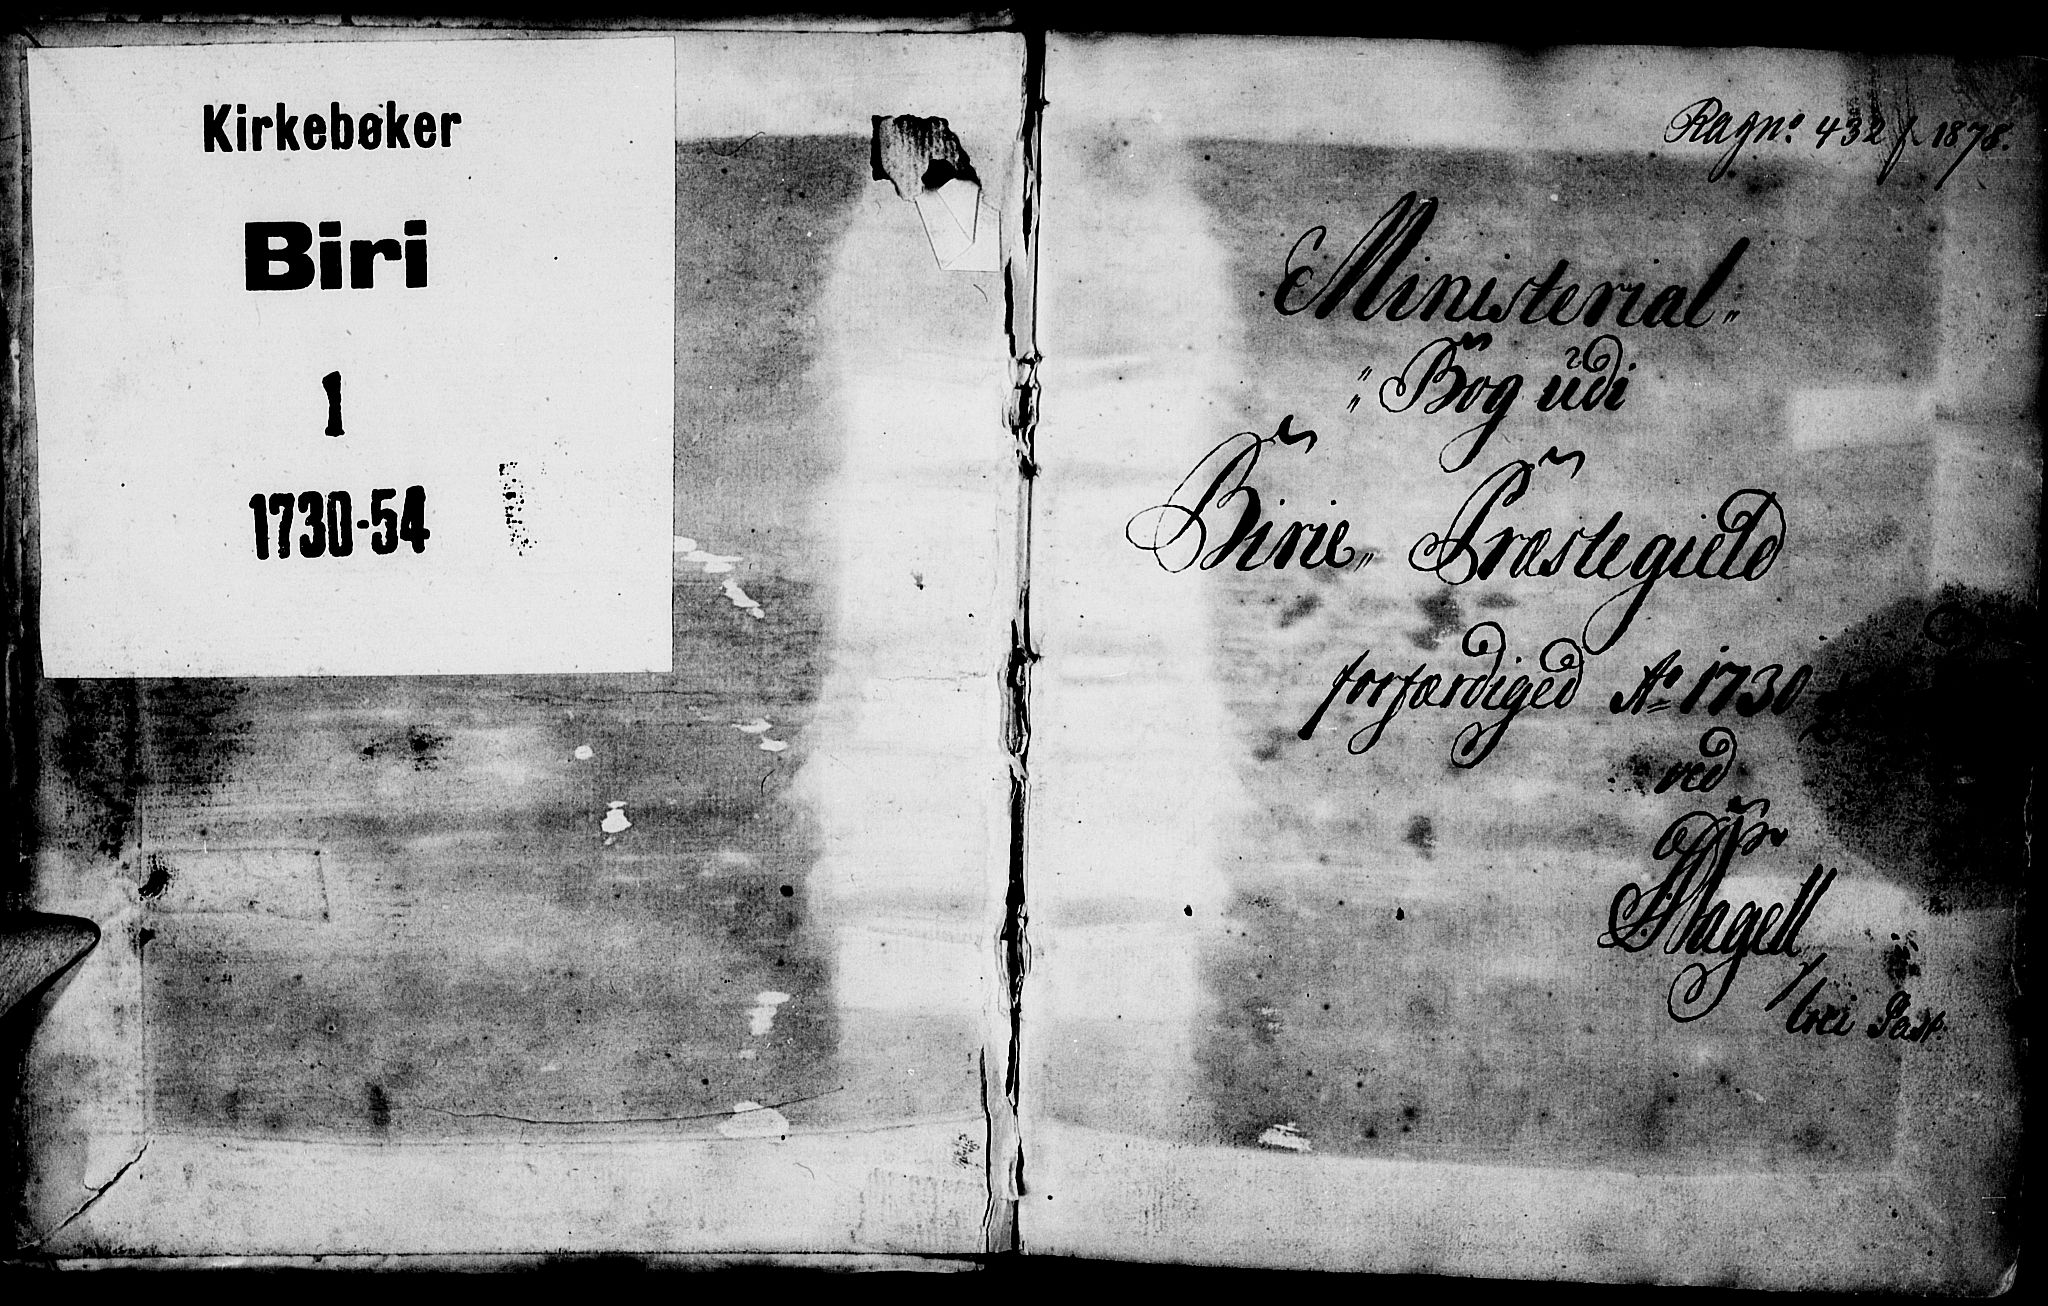 Kirkebøker
Biri
1
1730-54
Ragno. 432 f. 1878.
Ministerial„
„Bog udi
Birie„ Præstegield
forfærdiged Ao 1730
ved
Hagell
loci Past.